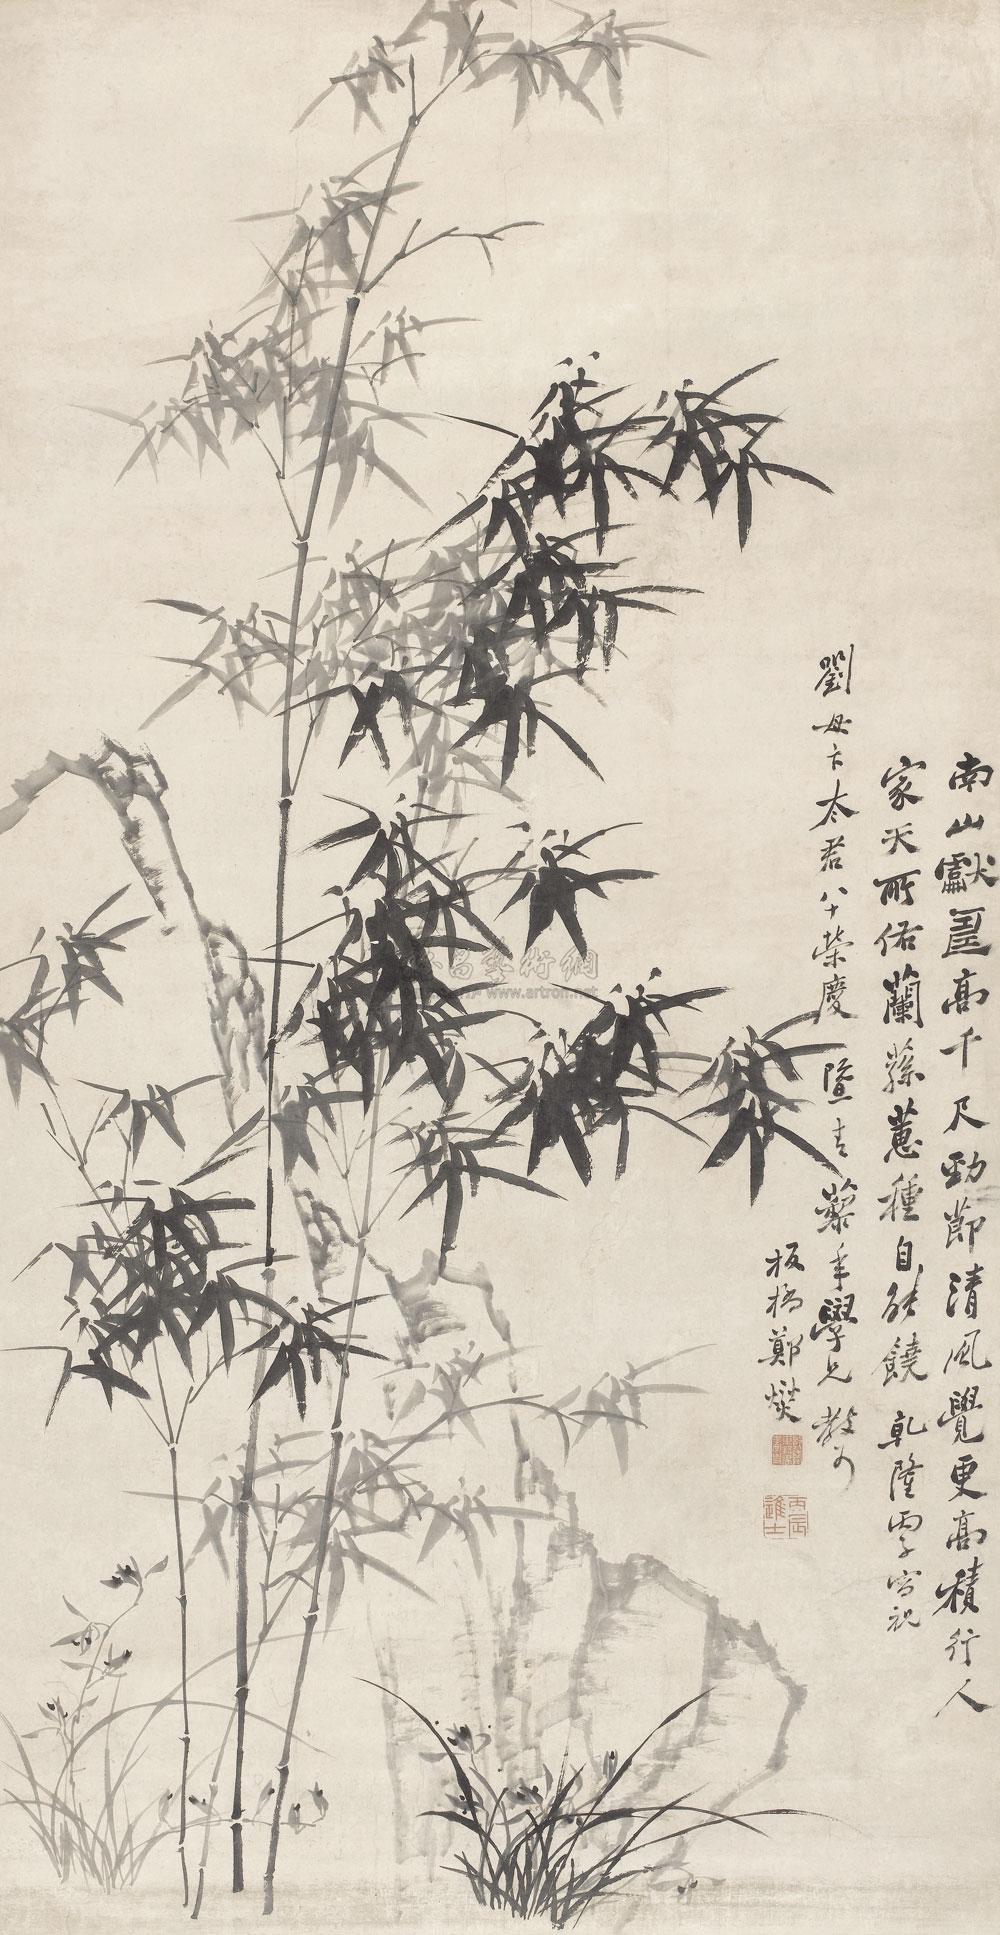 南山獻壽高千尺勁節清風覺更高積行人
家天所佑蘭蓀蕙種自能饒 乾隆丙子寫祝
劉母卞太君八十榮慶 暨青藜年學兄教可
板橋鄭燮
丙辰進士
www.artron.net